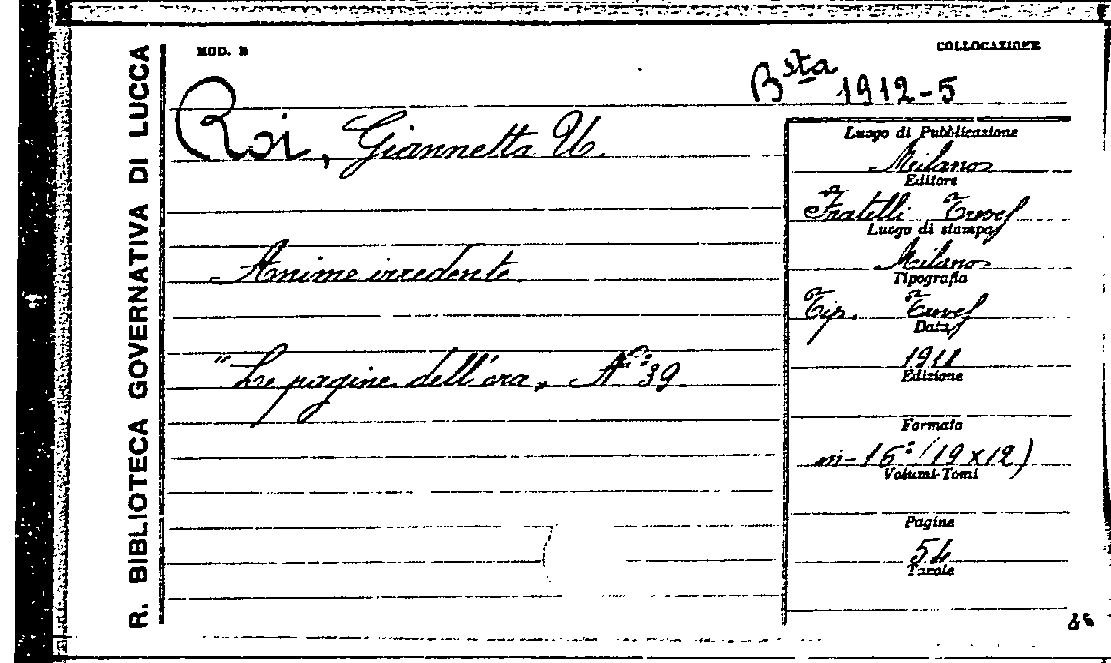 R. BIBLIOTECA GOVERNATIVA DI LUCCA
MOD. B
COLLOCAZIONE
Bsta 1912-5
Roi, Giannetta U.
Anime irredente.
"Le pagine dell'ora, N° 39.
Luogo di Pubblicazione
Milano
Editore
Fratelli Treves
Luogo di stampa
Milano
Tipografia
Tip. Treves
Data
Edizione
Formato
in-16° (19x12)
Volumi-Tomi
Pagine
54
Tavole